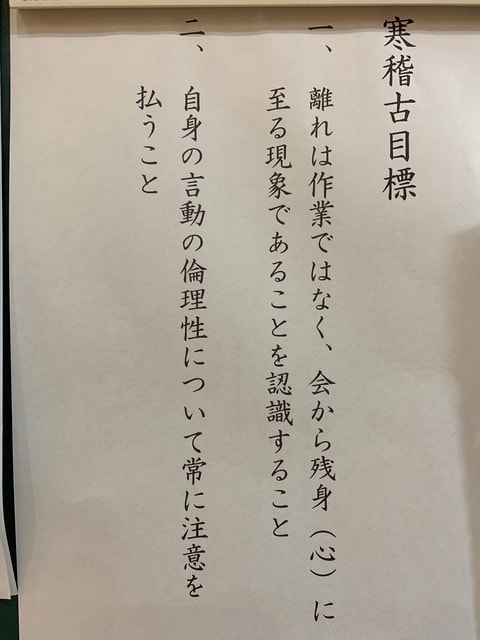 寒稽古目標
一、離れは作業ではなく、会から残身（心）に
至る現象であることを認識すること
二、自身の言動の倫理性について常に注意を
払うこと